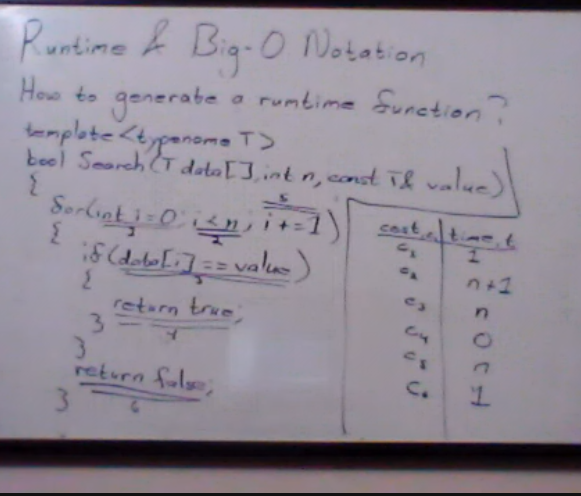 Runtime & Big-O Notation
How to generate a runtime function?
template<typename T>
bool Search(T data[], int n, const T& value)
{
for(int i=0; i<n; i+=1)
2 5
{
if(data[i]==value)
3
{
return true;
4
}
}
return false;
6
}
cost, c time, t
c₁ 1
c₂ n+1
c₃ n
c₄ 0
c₅ n
c₆ 1